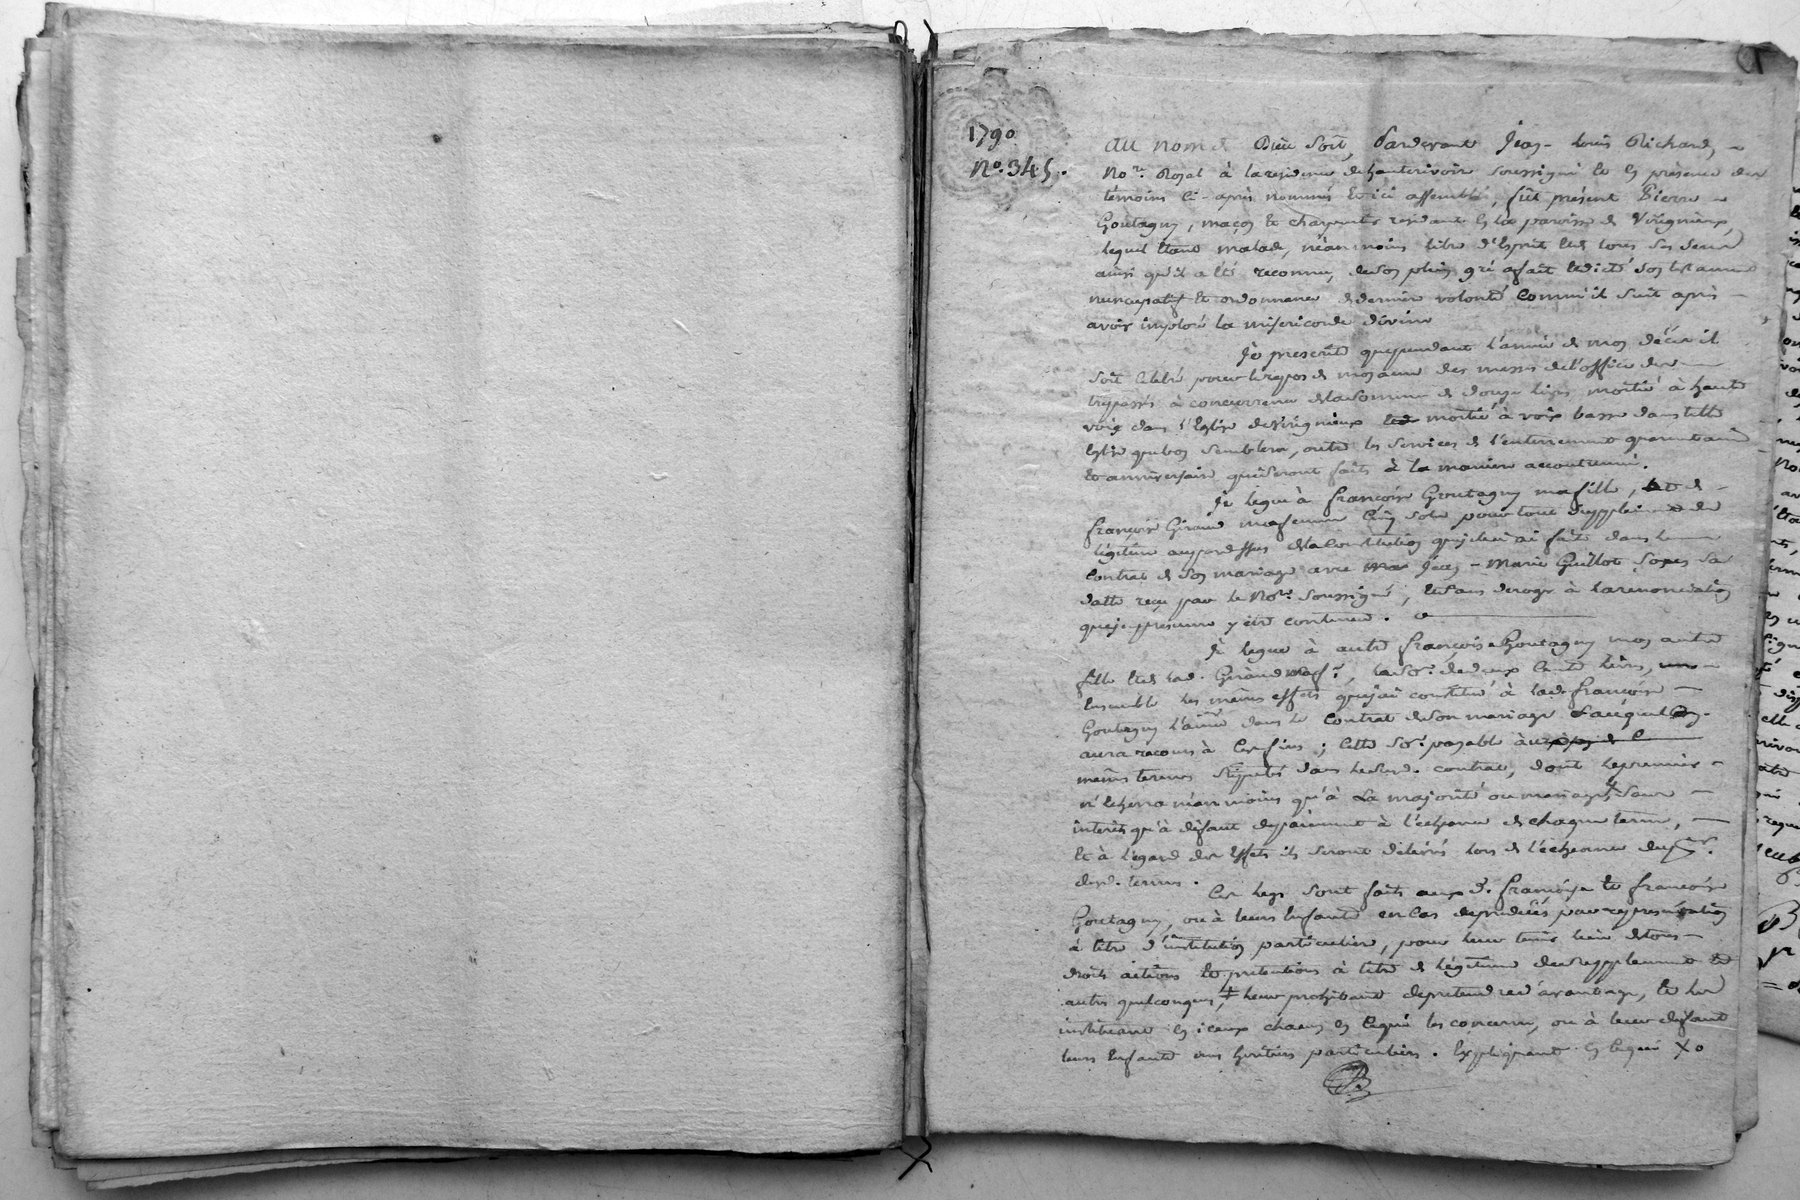 1790
No. 345.
au nom de Dieu soit, Pardevant Jean-Louis Richard,
Nore. Royal à la residence de hauterivoire soussigné et en présence des
témoins ci-après nommés et ici assemblés, fût présent Pierre
Goutagny, maçon et charpentier residant en la paroisse de Virignieux,
lequel étant malade, néanmoins libre d'Esprit et de tous ses sens
ainsi qu'il a été reconnu, de son plein gré a fait et dicté son testament
nuncupatif et ordonnance de derniere volonté comm'il suit après
avoir imploré la misericorde divine
Je prescrits que pendant l'année de mon décès il
soit célébré pour le repos de mon ame des messes de l'office des
trepassés à concurrence de la somme de douze livres, moitié à haute
voix dans l'Eglise de Virignieux et moitié à voix basse dans telle
Eglise que bon semblera, outre les services de l'enterrement quarantaine
et anniversaire qui seront faits à la maniere accoutumée.
Je legue à françoise Goutagny ma fille, et de
françoise Giraud ma femme cinq sols pour tout supplément de
légitime au par dessus de la constitution que je lui ai faite dans le
contrat de son mariage avec Jean-Marie Guillot sous sa
datte reçu par le Nore. soussigné, et sans deroger à la renonciation
que je présume y être contenue.
Je legue à autre françoise Goutagny mon autre
fille et de lad. Giraud maf.e, la so.e de deux cents livres,
ensemble les mêmes effets que j'ai constitué à lad. françoise
Goutagny l'ainée dans le contrat de son mariage auquel on
aura recours à ces fins; cette so.e payable aux
mêmes termes stipulés dans le susd. contrat, dont le premier
n'écherra néanmoins qu'à sa majorité ou mariage, sans
interêts qu'à défaut de paiement à l'échéance de chaque terme,
et à l'égard des effets ils seront délivrés lors de l'échéance du p.er
desd. termes.
Ces legs sont faits aux d. françoise et françoise
Goutagny, ou à leurs enfants en cas de prédécès par représentation
à titre d'institution particuliere, pour leur tenir lieu de tous
droits actions et pretentions à titre de légitime de supplement et
autres quelconques, leur prohibant de prétendre d'avantage, et les
instituant en iceux chacun en ce qui les concerne, ou à leur défaut
leurs enfants mes héritiers particuliers. Expliquant en ce qui